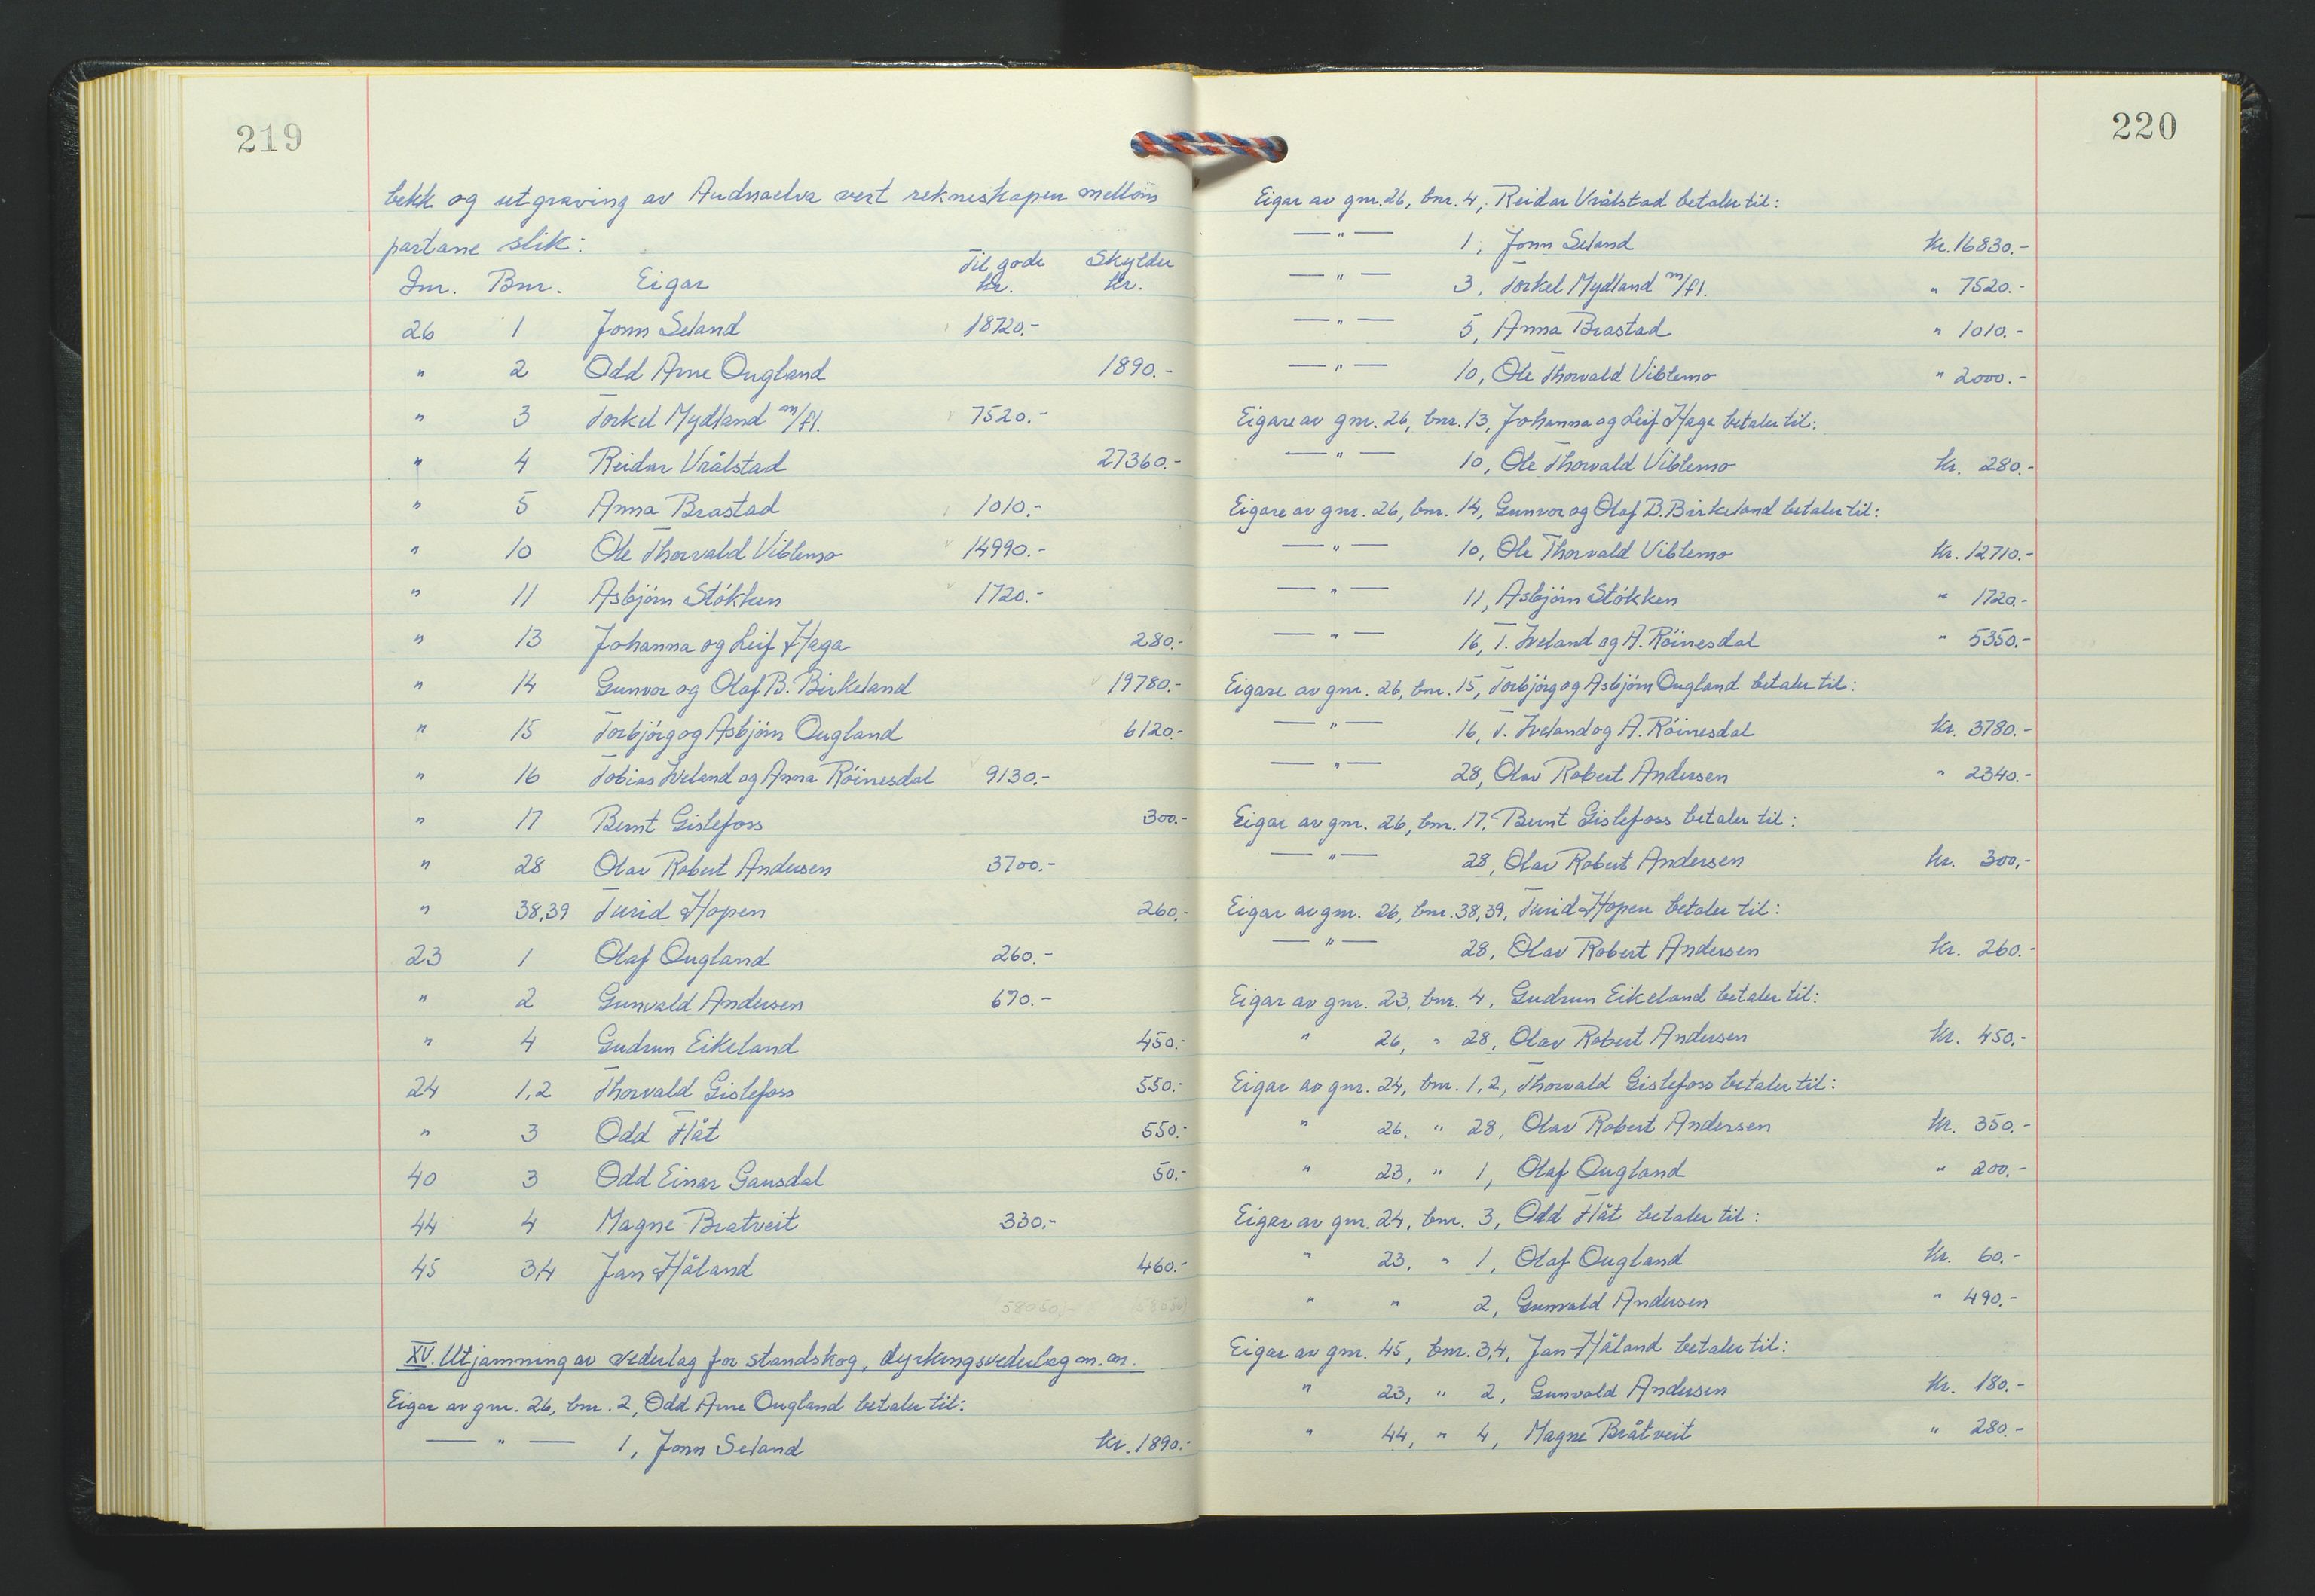 219
bekk og utgraving av Audnaelva vert rekneskapen mellom
partane slik:
Til gode Skylder
Gnr. Bnr. Eigar kr. kr.
26 1 Jonn Seland 18720.-
" 2 Odd Arne Ougland 1890.-
" 3 Torkel Mydland m/fl. 7520.-
" 4 Reidar Vrålstad 27360.-
" 5 Anna Brastad 1010.-
" 10 Ole Thorvald Viblemo 14990.-
" 11 Asbjørn Støkken 1720.-
" 13 Johanna og Leif Haga 280.-
" 14 Gunvor og Olaf B. Birkeland 19780.-
" 15 Torbjørg og Asbjørn Ougland 6120.-
" 16 Tobias Iveland og Anna Röinesdal 9130.-
" 17 Bernt Gislefoss 300.-
" 28 Olav Robert Andersen 3700.-
" 38,39 Turid Hopen 260.-
23 1 Olaf Ougland 260.-
" 2 Gunvald Andersen 670.-
" 4 Gudrun Eikeland 450.-
24 1,2 Thorvald Gislefoss 550.-
" 3 Odd Flåt 550.-
40 3 Odd Einar Gausdal 50.-
44 4 Magne Bratveit 330.-
45 3,4 Jan Håland 460.-
(58050.-) (58050)
XV. Utjamning av vederlag for standskog, dyrkingsvederlag m.m.
Eigar av gnr. 26, bnr. 2, Odd Arne Ougland betaler til:
— " — 1, Jonn Seland kr. 1890.-
220
Eigar av gnr. 26, bnr. 4, Reidar Vrålstad betaler til:
— " — 1, Jonn Seland kr. 16830.-
— " — 3, Torkel Mydland m/fl. " 7520.-
— " — 5, Anna Brastad " 1010.-
— " — 10, Ole Thorvald Viblemo " 2000.-
Eigare av gnr. 26, bnr. 13, Johanna og Leif Haga betaler til:
— " — 10, Ole Thorvald Viblemo kr. 280.-
Eigare av gnr. 26, bnr. 14, Gunvor og Olaf B. Birkeland betaler til:
— " — 10, Ole Thorvald Viblemo kr. 12710.-
— " — 11, Asbjørn Støkken " 1720.-
— " — 16, T. Iveland og A. Röinesdal " 5350.-
Eigare av gnr. 26, bnr. 15, Torbjørg og Asbjørn Ougland betaler til:
— " — 16, T. Iveland og A. Röinesdal kr. 3780.-
— " — 28, Olav Robert Andersen " 2340.-
Eigar av gnr. 26, bnr. 17, Bernt Gislefoss betaler til:
— " — 28, Olav Robert Andersen kr. 300.-
Eigar av gnr. 26, bnr. 38,39, Turid Hopen betaler til:
— " — 28, Olav Robert Andersen kr. 260.-
Eigar av gnr. 23, bnr. 4, Gudrun Eikeland betaler til:
" 26, " 28, Olav Robert Andersen kr. 450.-
Eigar av gnr. 24, bnr. 1,2, Thorvald Gislefoss betaler til:
" 26, " 28, Olav Robert Andersen kr. 350.-
" 23, " 1, Olaf Ougland " 200.-
Eigar av gnr. 24, bnr. 3, Odd Flåt betaler til:
" 23, " 1, Olaf Ougland kr. 60.-
" " 2, Gunvald Andersen " 490.-
Eigar av gnr. 45, bnr. 3,4, Jan Håland betaler til:
" 23, " 2, Gunvald Andersen kr. 180.-
" 44, " 4, Magne Bråtveit " 280.-